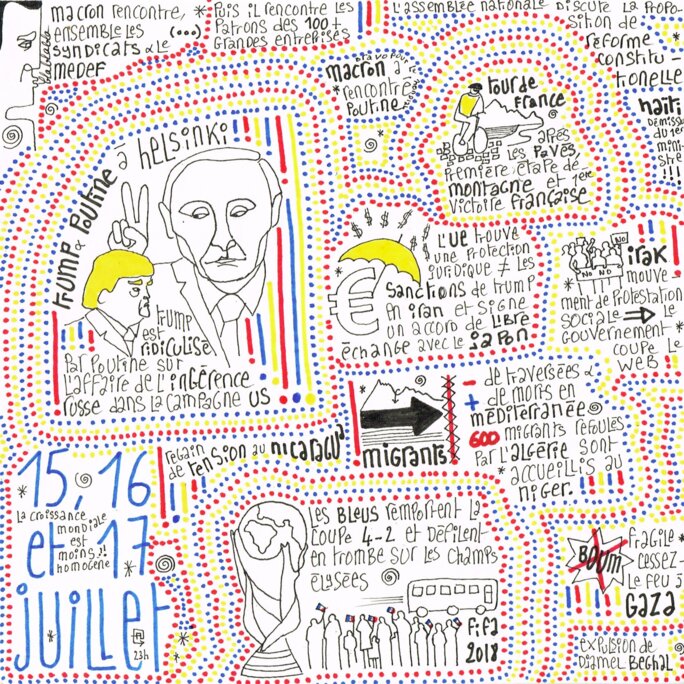 macron rencontre,
ensemble les (...)
syndicats & le
medef
* Puis il rencontre les
Patrons des 100+
Grandes entreprises
L'assemblée nationale discute la propo-
sition de
réforme
constitu-
tionelle
macron a
rencontré
Poutine
tour de
france
après
les pavés
première étape de
montagne et 1ère
victoire française
haïti
démiss
du 1er
mini-
stre
!!!
trump & Poutine à helsinki
trump
est
ridiculisé
par poutine sur
l'affaire de l'ingérence
russe dans la campagne US
$ $ $ $ $ $
€
L'UE trouve
une protection
juridique ≠ les
sanctions de trump
en iran et signe
un accord de libre
échange avec le japon
NO
NO NO
irak
mouve-
ment de protestation
sociale ⇒ le
gouvernement *
coupe le
web !!
migrants
- de traversées &
+ de morts en
méditerranée
600 migrants refoulés
par l'algérie sont
* accueillis au
niger.
regain
de tension au nicaragua
15, 16
la croissance
mondiale
est
moins
homogène
et 17
juillet
23h
Les Bleus remportent la
coupe 4-2 et défilent
en trombe sur les champs
élysées
fifa
2018
BOUM
fragile *
cessez-
le feu à
Gaza
expulsion de
Djamel Beghal